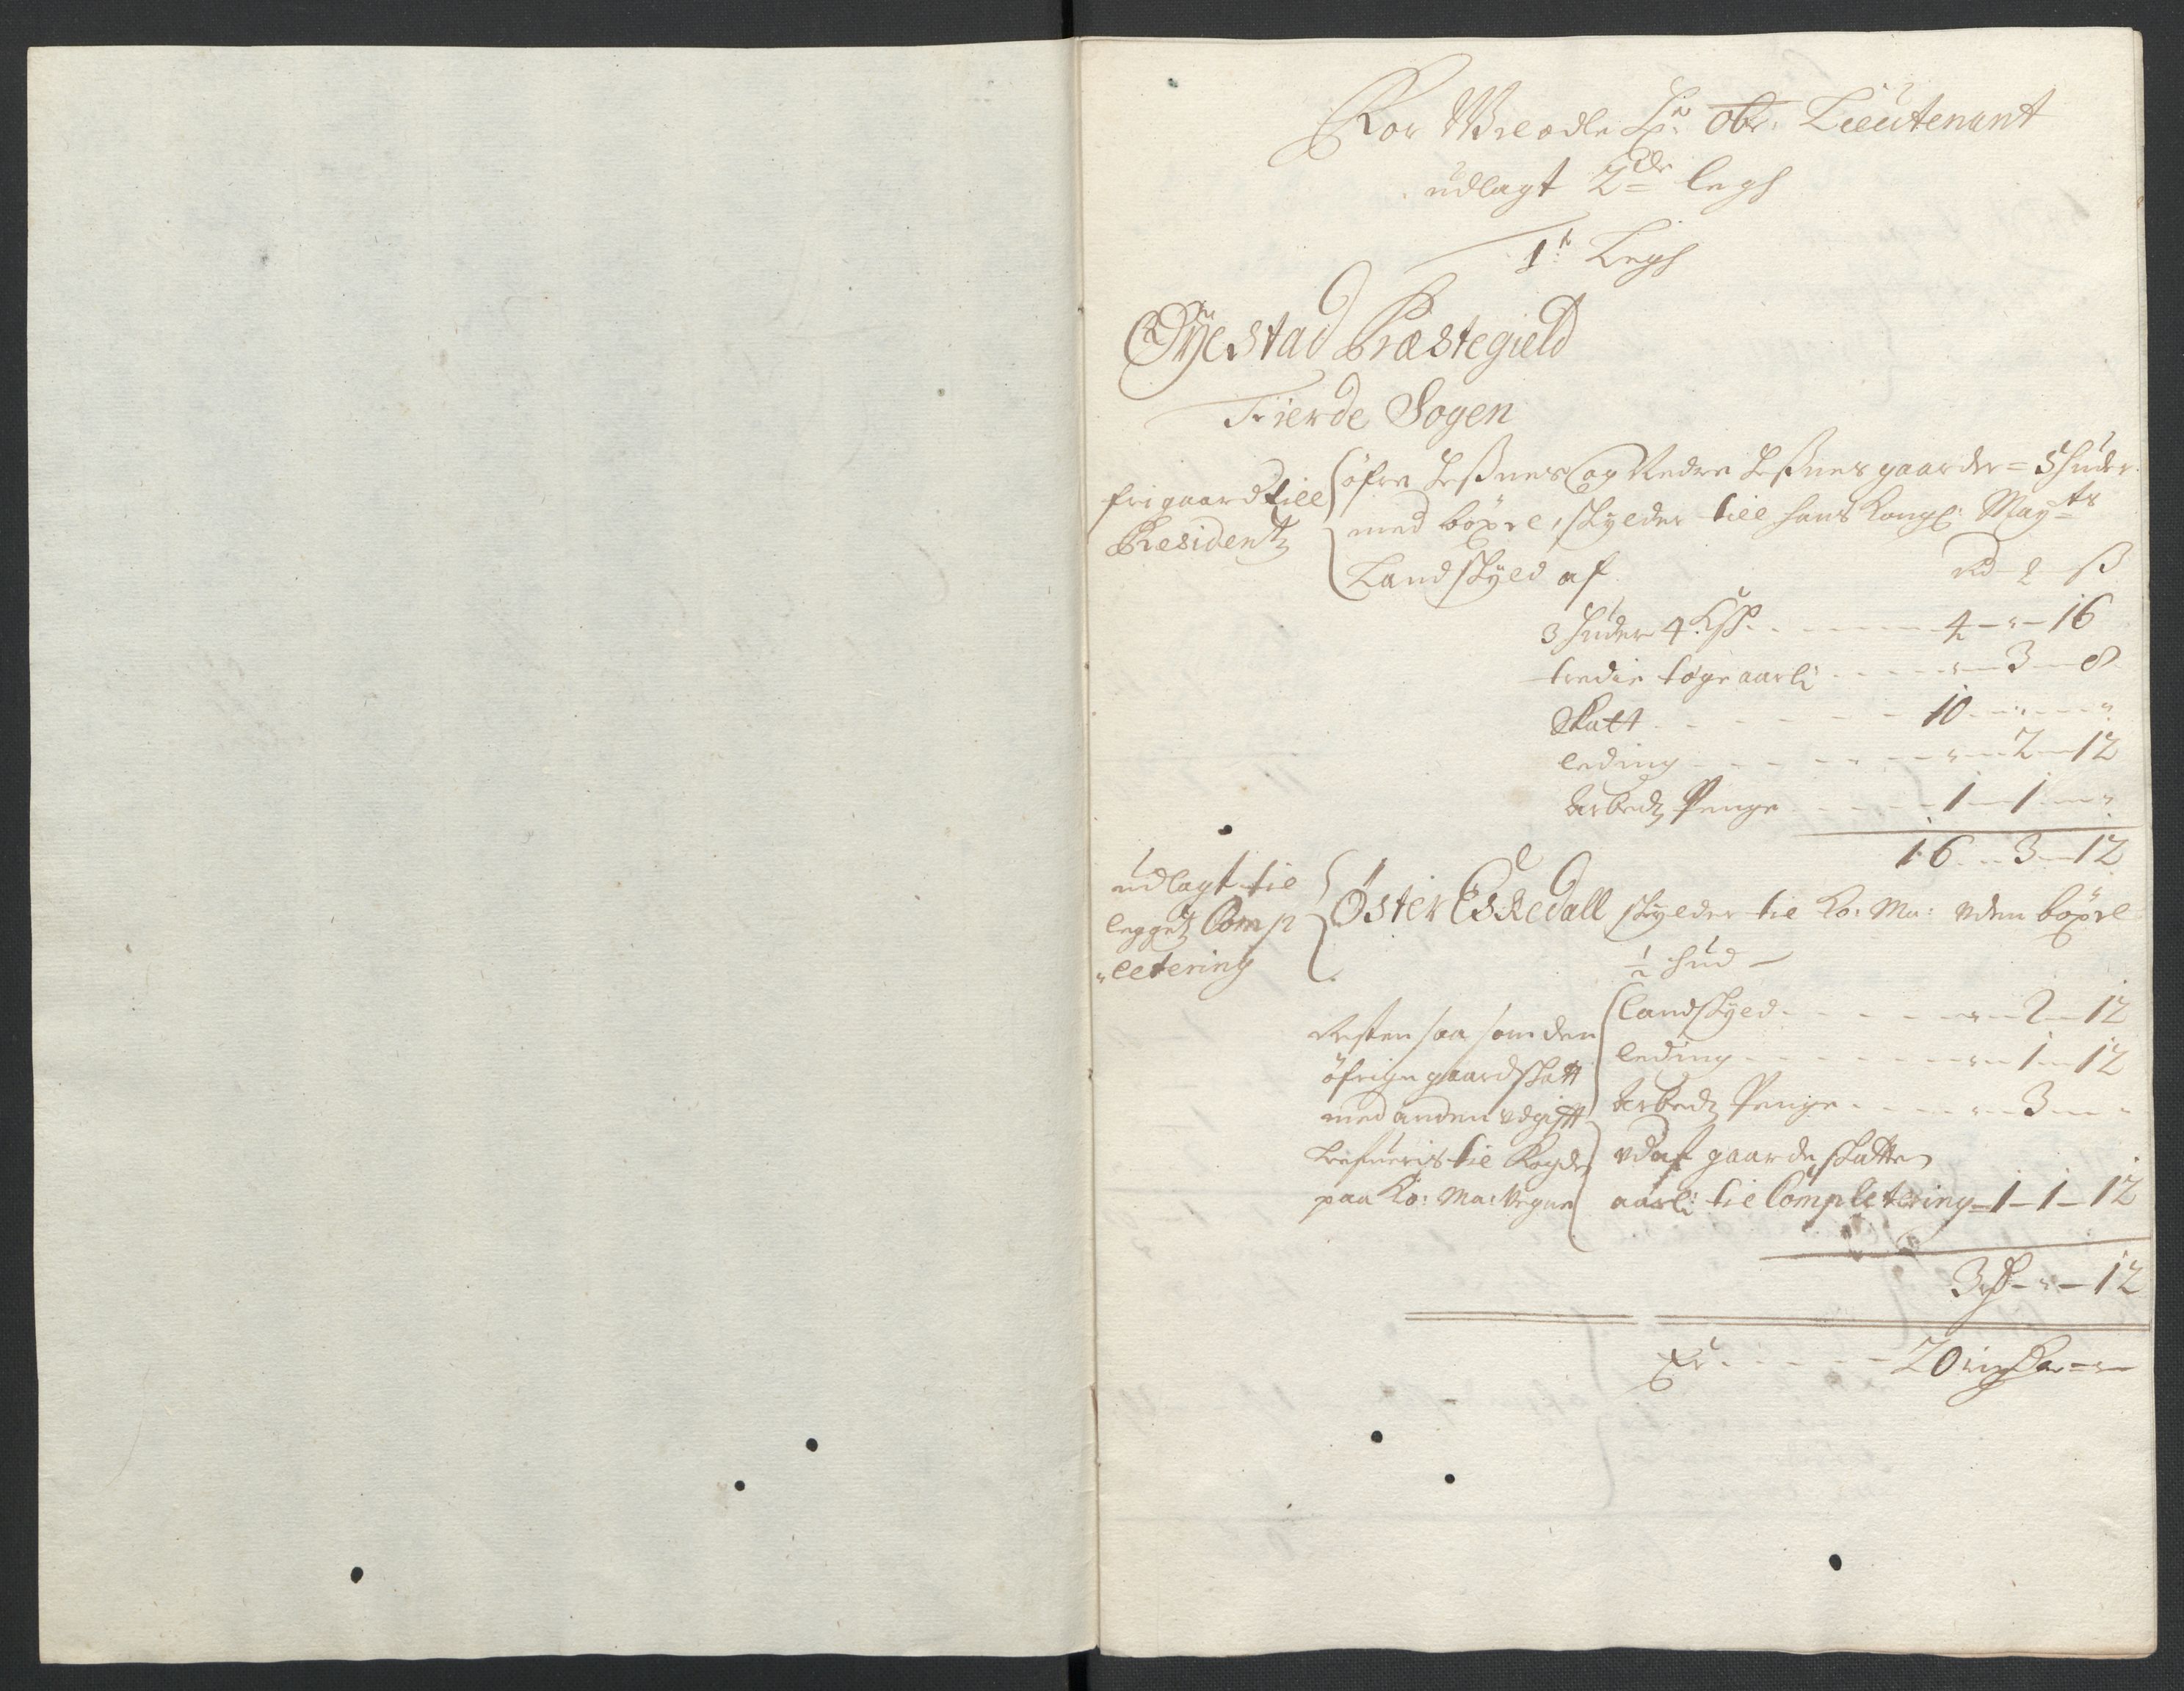 For Weledle Hr Obr: Lieutenant
udlagt 2de legh
1t Legh
Øyestad Præstegield
Fierde Sogen
frigaard till
Præsidentz
öfre Leßnes og Nedre Leßnes gaarder = 5 huder
med böxel, skylder till hans Kongl: Mayts
Landskyld af
rd - ß
3 huder 4 Kß - 4 - " - 16
tredie tage aarli - " - 3 - 8
Skatt - 10 - " - "
leding - " - 2 - 12
Arbedz Penge - 1 - 1 - "
16 - 3 - 12
udlagt til
leggetz Comp
letering
Öster Eskedall skylder til Ko: Ma: uden böxel
½ hud
Resten saa som den
öfrige gaardskatt
med anden udgifft
lefueris til Fogden
paa Ko: Ma: Vegne
landskyld - " - 2 - 12
leding - " - 1 - 12
Arbedz Penge - " - 3 - "
udaf gaardeskatten
aarli til Completering - 1 - 1 - 12
3 rd - " - 12
Er - 20 - "